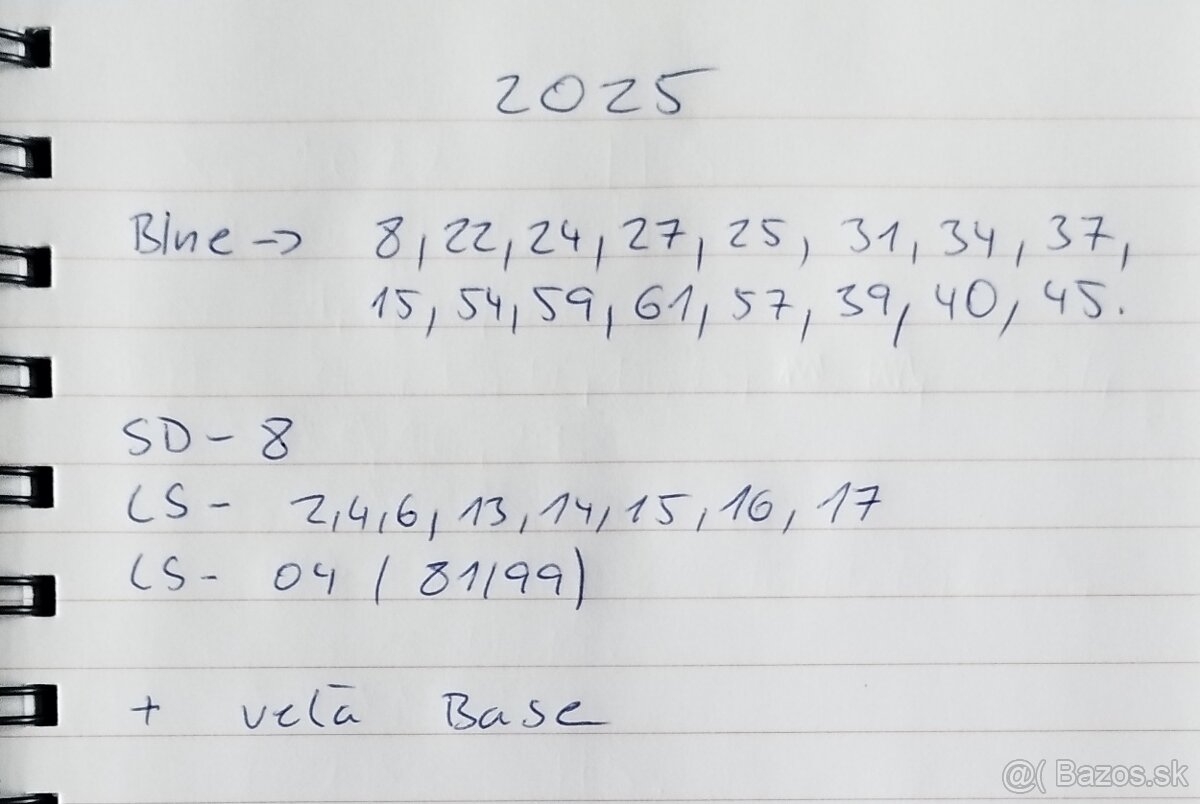 2025
Blue → 8, 22, 24, 27, 25, 31, 34, 37,
15, 54, 59, 61, 57, 39, 40, 45.
SD - 8
CS - 2,4,6, 13, 14, 15, 16, 17
CS - 04 (81/99)
+ velā Base
@( Bazos.sk